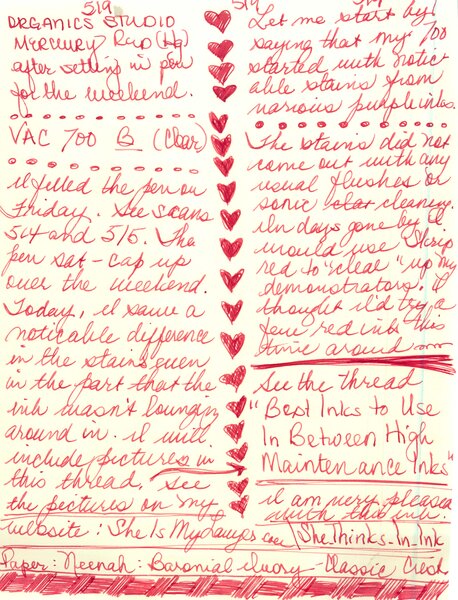 519
ORGANICS STUDIO
MERCURY RED (Hg)
after setting in pen
for the weekend.
VAC 700 B (Clear)
I filled the pen on
Friday. See scans
514 and 515. The
pen sat - cap up
over the weekend.
Today, I saw a
noticable difference
in the stains even
in the part that the
ink wasn't lounging
around in. I will
include pictures in
this thread, see
the pictures on my
519
519
Let me start by
saying that my 700
started with notic
able stains from
various purple inks.
The stains did not
come out with any
usual flushes or
sonic cleaning.
In days gone by I
would use Skrip
red to "clear" up my
demonstrators. I
thought I'd try a
few red inks this
time around
See the thread
"Best Inks to Use
In Between High
Maintenance Inks"
I am very pleased
with this ink.
website: She Is My Lawyer.com She-Thinks-In-Ink
Paper: Neenah: Baronial Ivory - Classic Crest